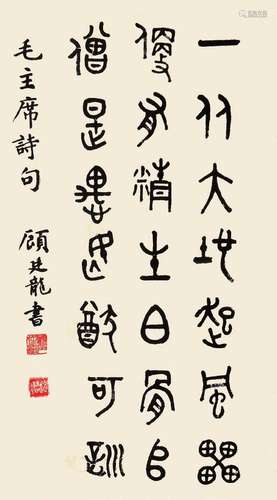 一从大地起風雷
便有精生白骨堆
僧是愚氓猶可訓
毛主席詩句 顧廷龍書